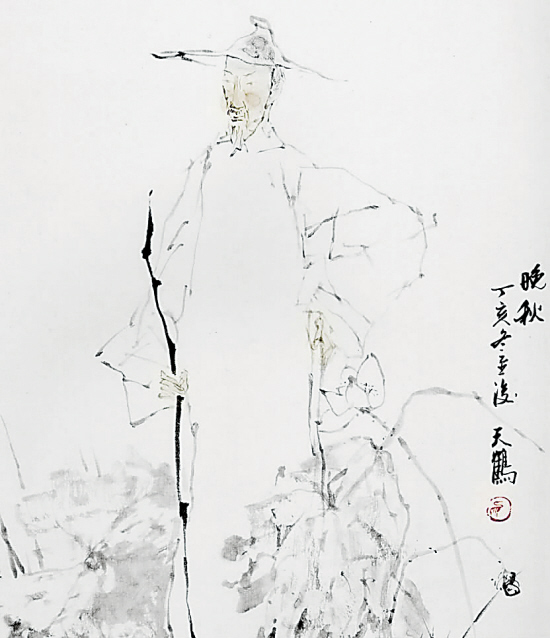 晚秋
丁亥冬至後 天鶴